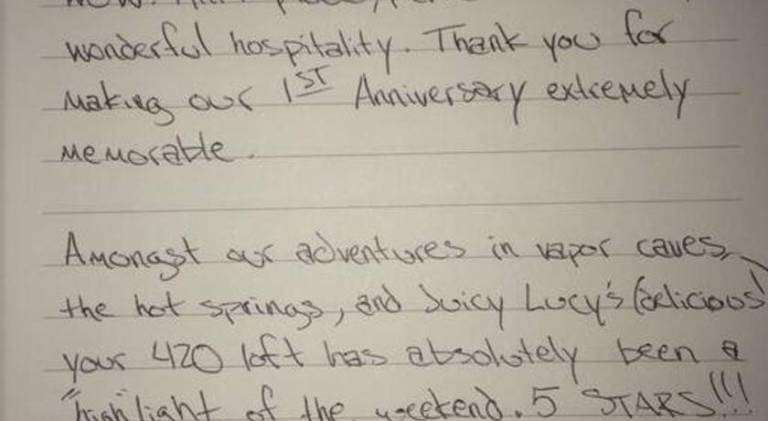 wonderful hospitality. Thank you for
making our 1ST Anniversary extremely
memorable.
Amongst our adventures in vapor caves,
the hot springs, and Juicy Lucy's (delicious)
your 420 loft has absolutely been a
"high"light of the weekend. 5 STARS!!!